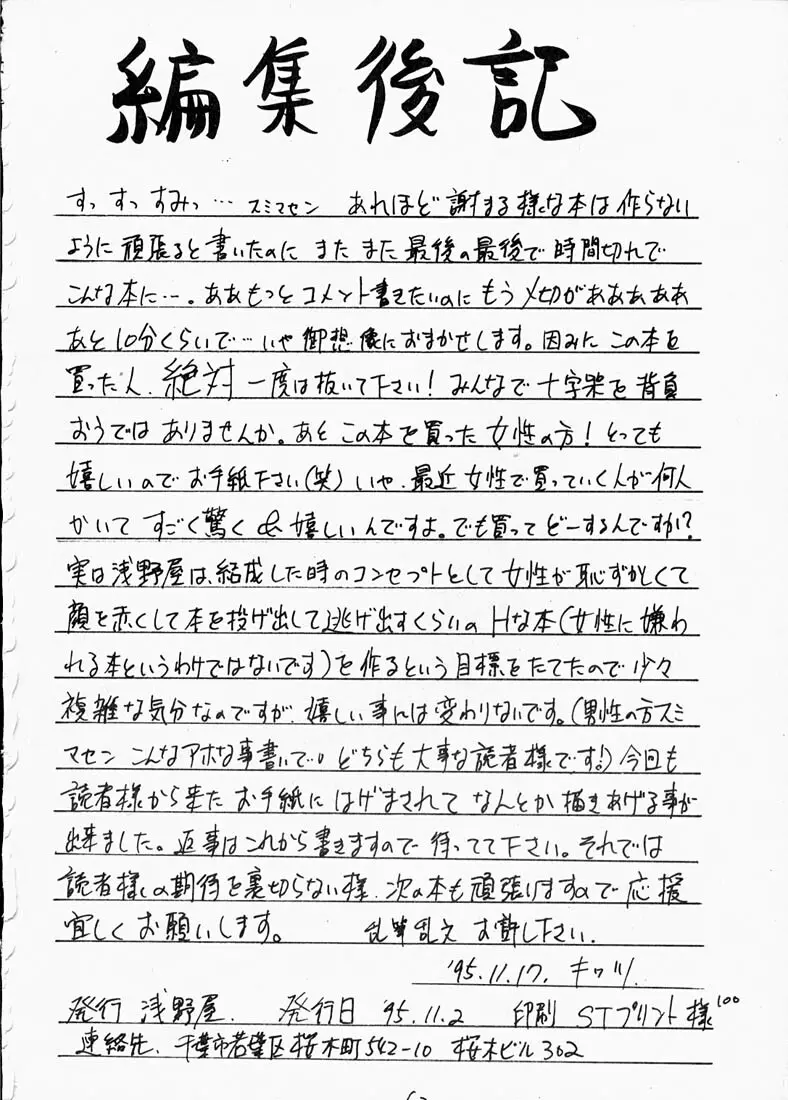 編集後記
すっすっすみっ… スミマセン あれほど謝まる様な本は作らない
ように頑張ると書いたのに また また 最後の最後で時間切れで
こんな本に…。ああもっとコメント書きたいのにもう〆切がああああああ
あと10分くらいで…いや御想像におまかせします。因みに この本を
買った人、絶対 一度は抜いて下さい! みんなで十字架を背負
おうではありませんか。あと この本を買った女性の方! とっても
嬉しいのでお手紙下さい(笑) いや、最近女性で買っていく人が何人
かいて すごく驚く&嬉しいんですよ。でも買ってどーするんですか?
実は浅野屋は、結成した時のコンセプトとして女性が恥ずかしくて
顔を赤くして本を投げ出して逃げ出すくらいのHな本(女性に嫌わ
れる本というわけではないです)を作るという目標をたてたので少々
複雑な気分なのですが、嬉しい事には変わりないです。(男性の方スミ
マセン こんなアホな事書いて。どちらも大事な読者様です!) 今回も
読者様から来たお手紙にはげまされて なんとか描きあげる事が
出来ました。返事はこれから書きますので待ってて下さい。それでは
読者様の期待を裏切らない様、次の本も頑張りますので応援
宜しくお願いします。 乱筆乱文お許し下さい.
'95.11.17. キツツ.
発行 浅野屋. 発行日 '95.11.2 印刷 STプリント様100
連絡先、千葉市若葉区桜木町542-10 桜木ビル302